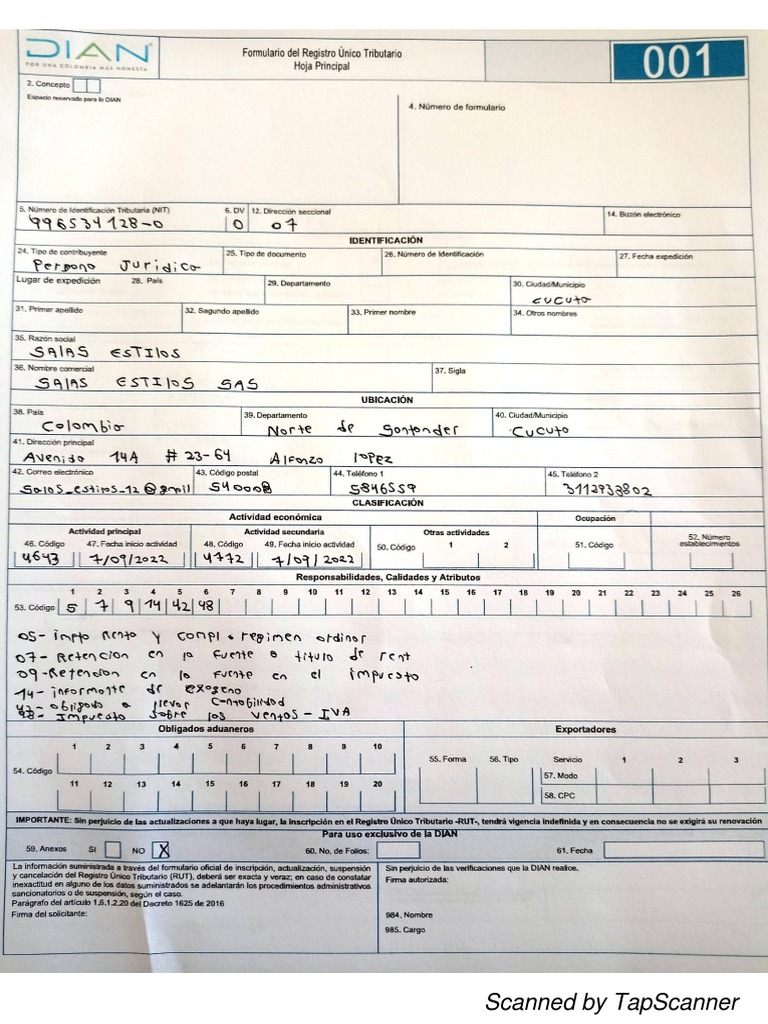 DIAN
POR UNA COLOMBIA MÁS HONESTA
Formulario del Registro Único Tributario
Hoja Principal
001
2. Concepto
Espacio reservado para la DIAN
4. Número de formulario
5. Número de Identificación Tributaria (NIT) 6. DV 12. Dirección seccional 14. Buzón electrónico
996534128-0 0 07
IDENTIFICACIÓN
24. Tipo de contribuyente 25. Tipo de documento 26. Número de Identificación 27. Fecha expedición
Persona Juridica
Lugar de expedición 28. País 29. Departamento 30. Ciudad/Municipio
cucuta
31. Primer apellido 32. Segundo apellido 33. Primer nombre 34. Otros nombres
35. Razón social
SAlAS ESTIlOS
36. Nombre comercial 37. Sigla
SAlAS ESTILOS SAS
UBICACIÓN
38. País 39. Departamento 40. Ciudad/Municipio
Colombia Norte de Santander Cucuta
41. Dirección principal
Avenida 14A # 23-64 Alfonzo lopez
42. Correo electrónico 43. Código postal 44. Teléfono 1 45. Teléfono 2
540008 5846559 3112933802
CLASIFICACIÓN
Actividad económica Ocupación
Actividad principal Actividad secundaria Otras actividades 52. Número establecimientos
46. Código 47. Fecha inicio actividad 48. Código 49. Fecha inicio actividad 50. Código 1 2 51. Código
4643 7/09/2022 4772 7/09/2022
Responsabilidades, Calidades y Atributos
1 2 3 4 5 6 7 8 9 10 11 12 13 14 15 16 17 18 19 20 21 22 23 24 25 26
53. Código 5 7 9 14 42 48
05- impto renta y compl. regimen ordinar
07- Retencion en la fuente a titulo de rent
09-Retencion en la fuente en el impuesto
14- informante de exogena
42- obligado a llevar contabilidad
48- Impuesto sobre las ventas - IVA
Obligados aduaneros Exportadores
1 2 3 4 5 6 7 8 9 10
55. Forma 56. Tipo Servicio 1 2 3
54. Código 57. Modo
11 12 13 14 15 16 17 18 19 20
58. CPC
IMPORTANTE: Sin perjuicio de las actualizaciones a que haya lugar, la inscripción en el Registro Único Tributario -RUT-, tendrá vigencia indefinida y en consecuencia no se exigirá su renovación
Para uso exclusivo de la DIAN
59. Anexos SI NO X 60. No. de Folios: 61. Fecha
La información suministrada a través del formulario oficial de inscripción, actualización, suspensión
y cancelación del Registro Único Tributario (RUT), deberá ser exacta y veraz; en caso de constatar
inexactitud en alguno de los datos suministrados se adelantarán los procedimientos administrativos
sancionatorios o de suspensión, según el caso.
Parágrafo del artículo 1.6.1.2.20 del Decreto 1625 de 2016
Firma del solicitante:
Sin perjuicio de las verificaciones que la DIAN realice.
Firma autorizada:
984. Nombre
985. Cargo
Scanned by TapScanner